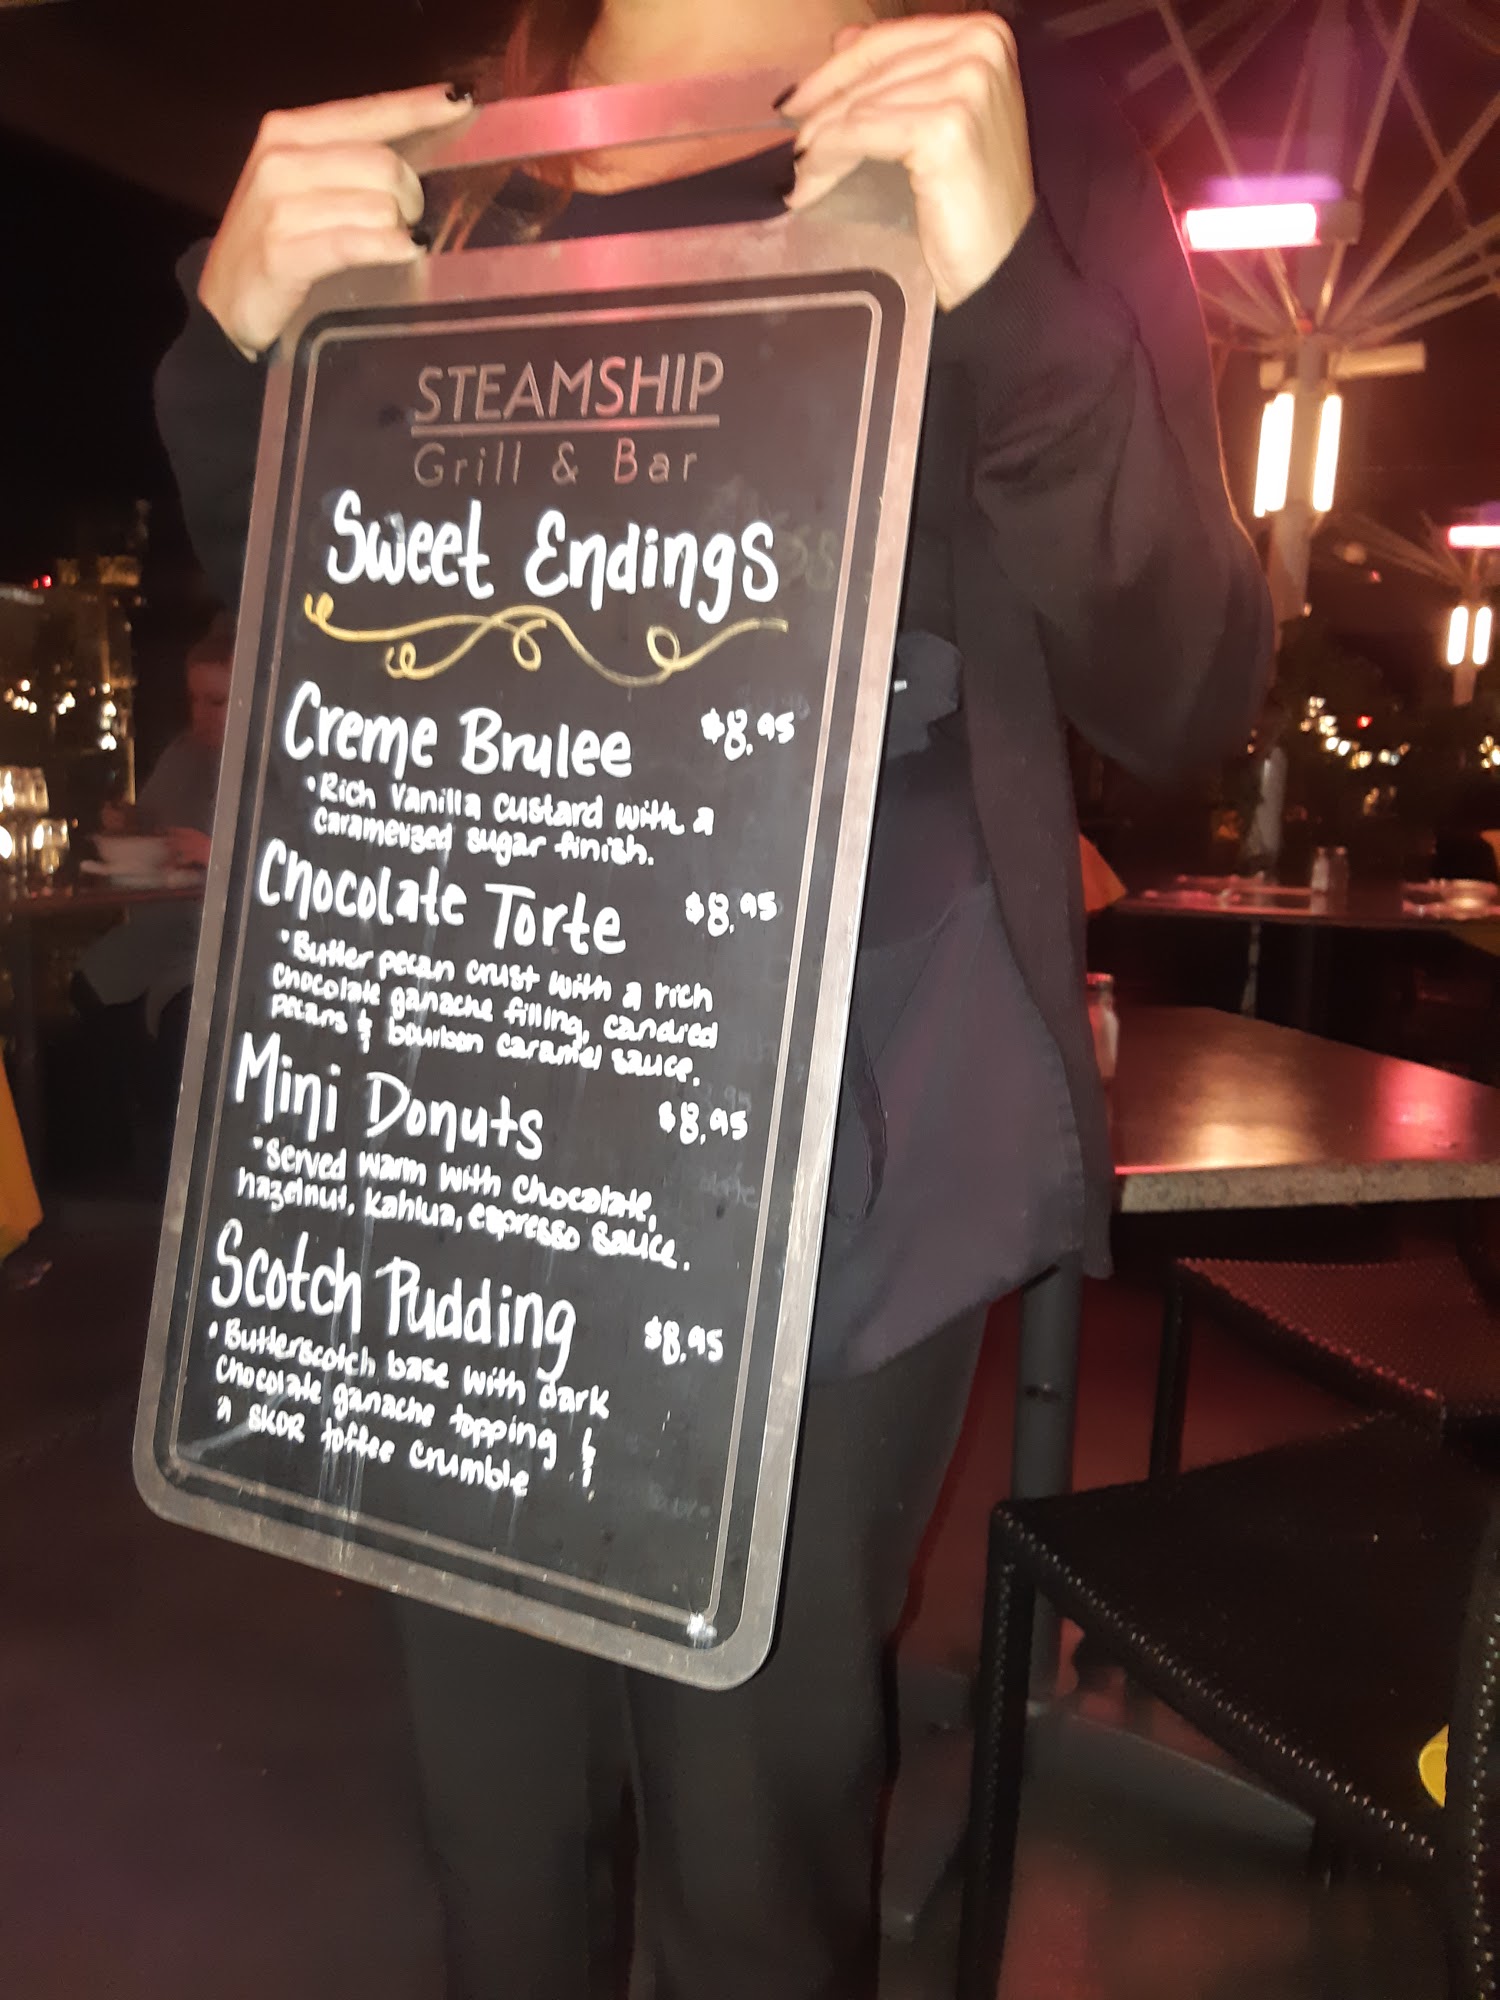 STEAMSHIP
Grill & Bar
Sweet Endings
Creme Brulee $8.95
• Rich vanilla custard with a
caramelized sugar finish.
Chocolate Torte $8.95
• Butter pecan crust with a rich
chocolate ganache filling, candied
pecans & bourbon caramel sauce.
Mini Donuts $8.95
• Served warm with chocolate,
hazelnut, Kahlua, espresso sauce.
Scotch Pudding $8.95
• Butterscotch base with dark
chocolate ganache topping &
a SKOR toffee crumble